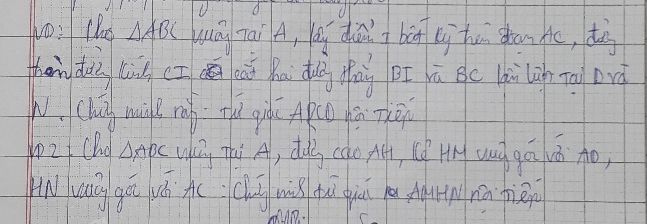 VD: Cho ΔABC vuông tại A, lấy điểm I bất kỳ trên đoạn AC, đường
tròn đường kính CI cắt hai đường thẳng BI và BC lần lượt tại D và
N. Chứng minh rằng tứ giác ABCD nội tiếp
VD2: Cho ΔABC vuông tại A, đường cao AH, kẻ HM vuông góc với AB,
HN vuông góc với AC. Chứng minh tứ giác AMHN nội tiếp